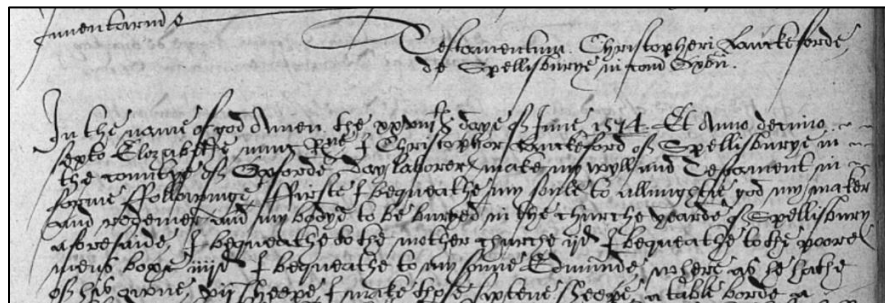 Inventarium
Testamentum Christopheri Lanckeforde
de Spellisburye in com Oxon.
In the name of god Amen the xxviijth daye of June 1574 Et Anno decimo
sexto Elizabethe nunc Rne I Christophor Lanckeford of Spellisburye in
the countye of Oxforde Day laborer make my wyll and Testament in
forme ffollowinge. ffirste I bequeathe my soule to allmightie god my maker
and redemer and my bodye to be buryed in the churche yearde of Spellisbury
aforesaide, I bequeathe to the mother churche ijd I bequeathe to the poore
mens boxe iiijd I bequeathe to my sonne Edmunde, where as he hathe
of his owne, vij sheepe I make those sixtene sheepe, a table borde a